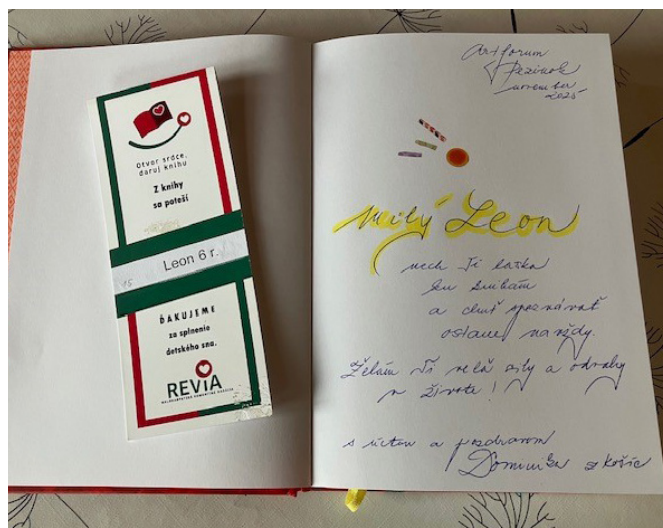 Otvor srdce,
daruj knihu
Z knihy
sa poteší
Leon 6 r.
15
ĎAKUJEME
za splnenie
detského sna.
REViA
MALOKARPATSKÁ KOMUNITNÁ NADÁCIA
Artforum
Pezinok
november
2025
milý Leon
nech Ti láska
ku knihám
a chuť spoznávať
ostane navždy.
Želám Ti veľa sily a odvahy
v živote!
s úctou a pozdravom
Dominika z Košíc